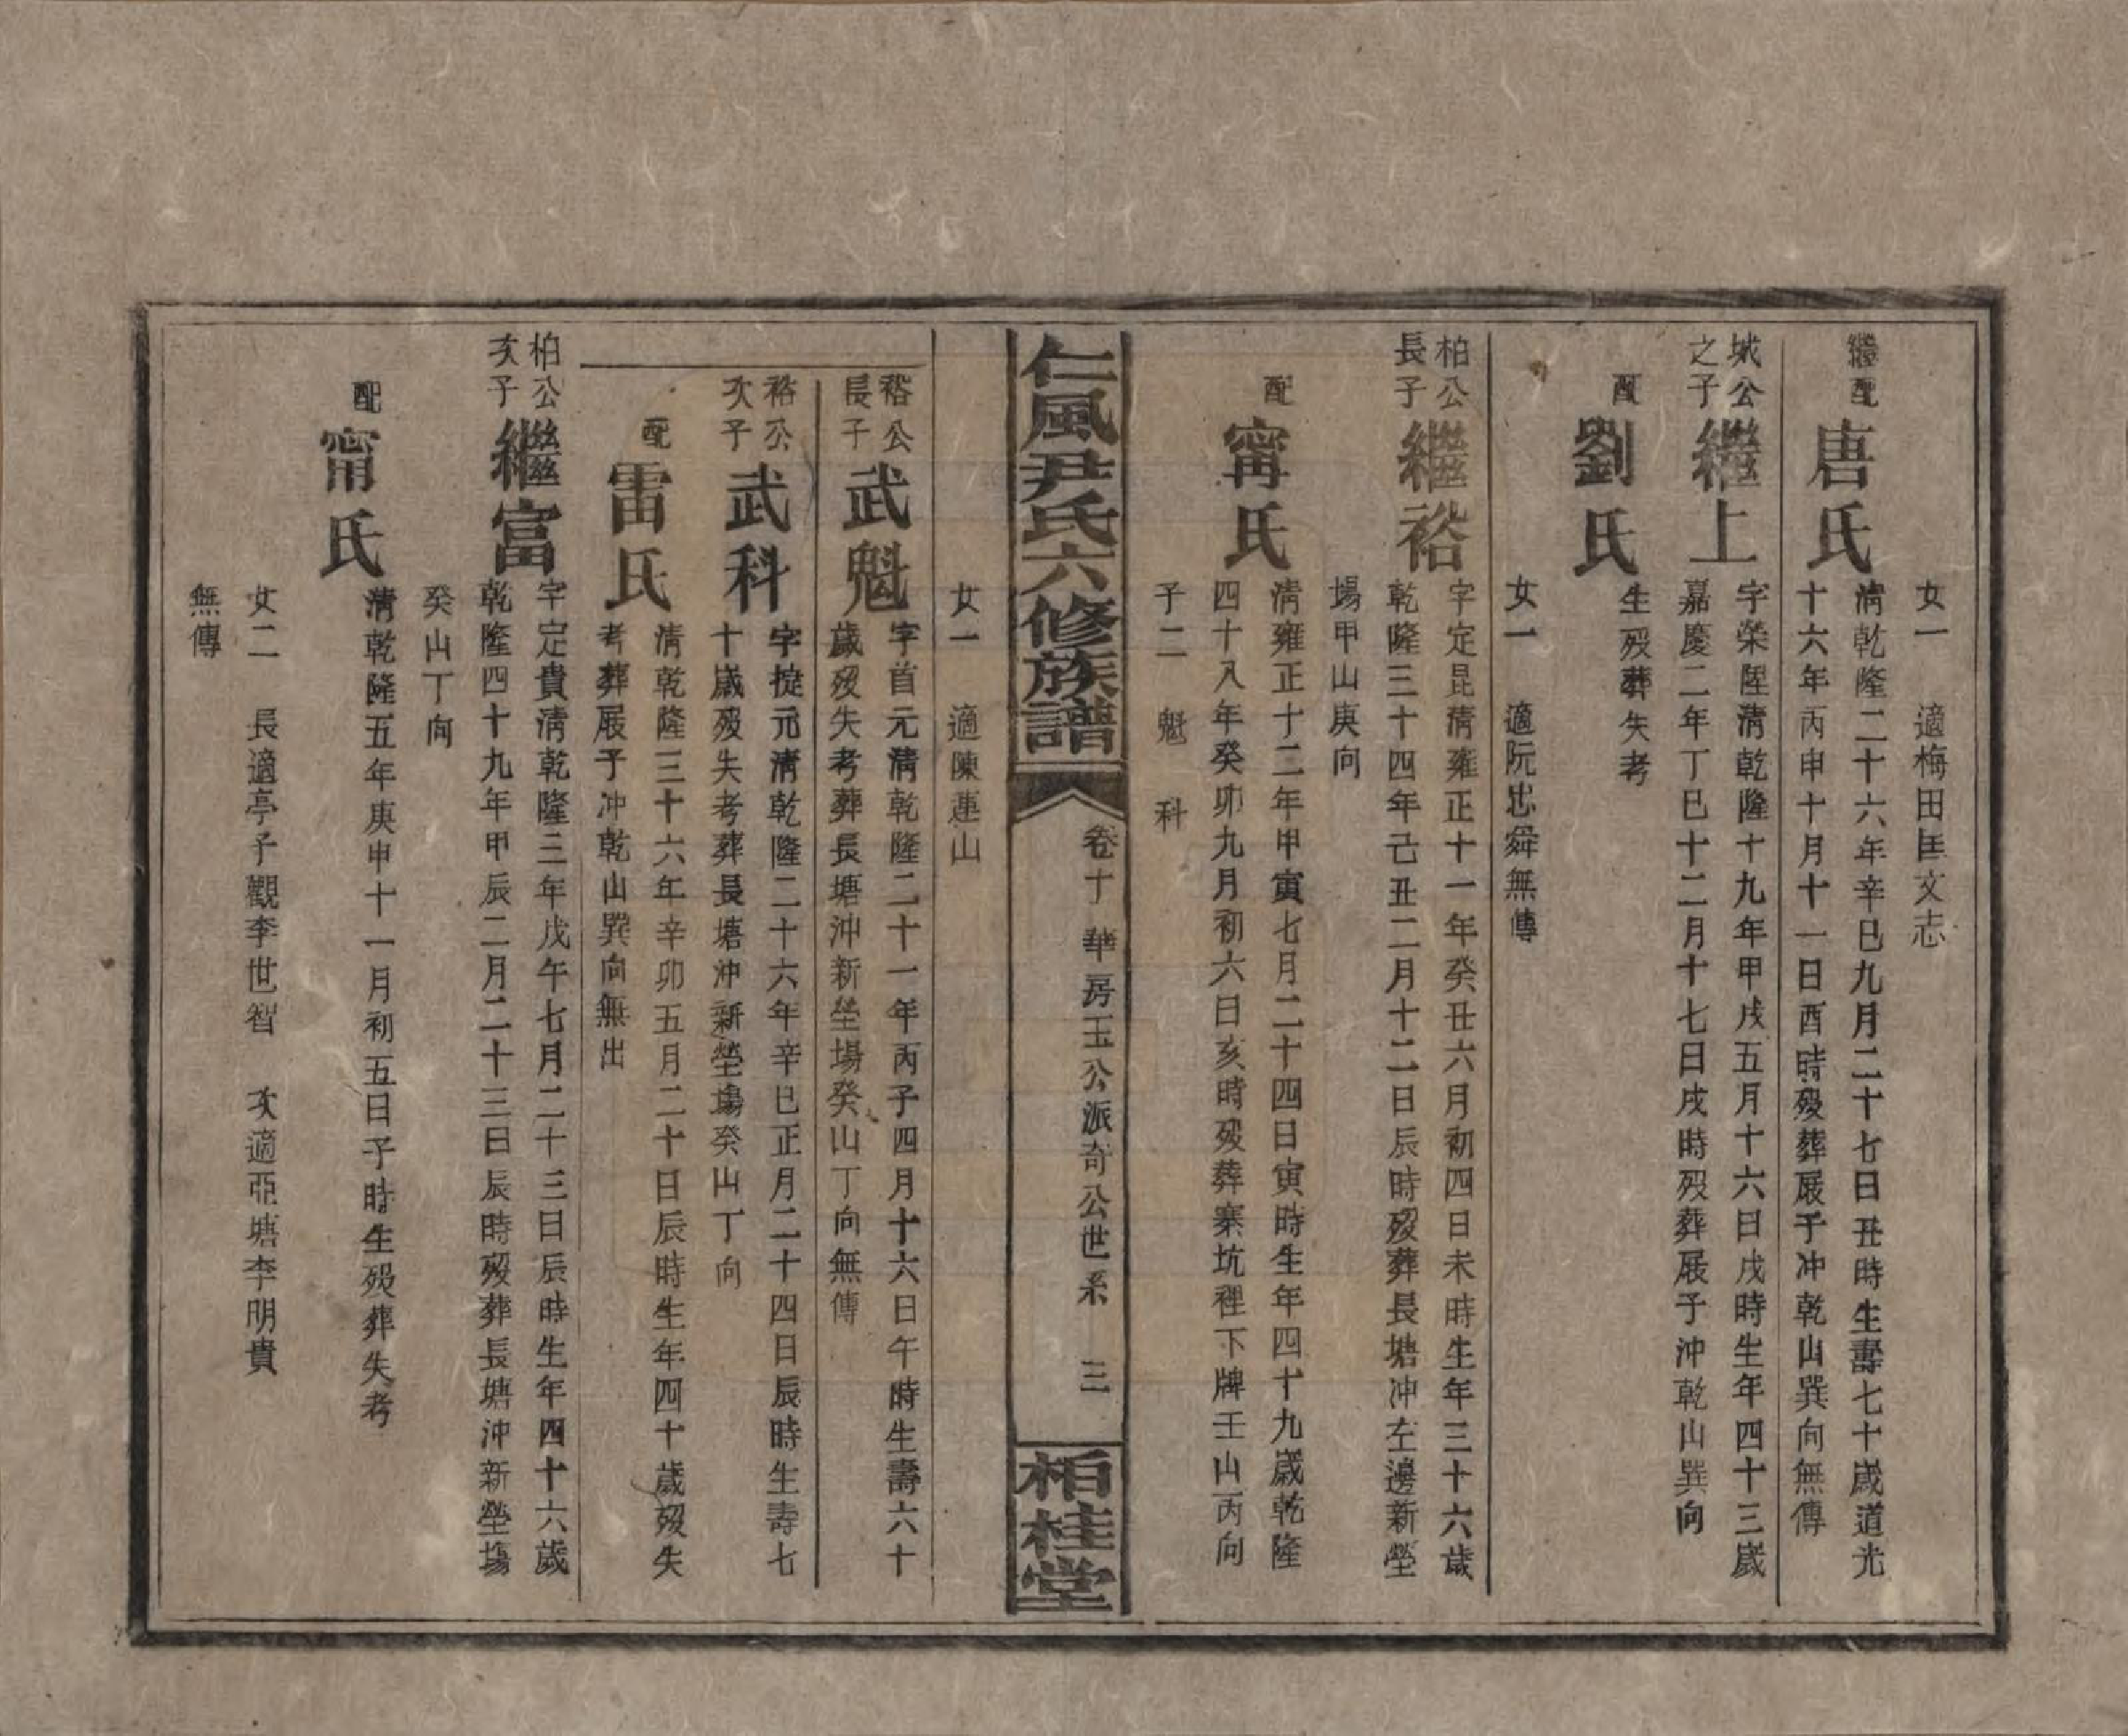 女一　適梅田匡文志
繼配唐氏
清乾隆二十六年辛巳九月二十七日丑時生壽七十歲道光
十六年丙申十月十一日酉時歿葬屐子冲乾山巽向無傳
城公之子繼上
字榮陞清乾隆十九年甲戌五月十六日戌時生年四十三歲
嘉慶二年丁巳十二月十七日戌時歿葬屐子沖乾山巽向
配劉氏
生歿葬失考
女一　適阮忠舜無傳
柏公長子繼裕
字定昆清雍正十一年癸丑六月初四日未時生年三十六歲
乾隆三十四年己丑二月十二日辰時歿葬長塘冲左邊新塋
場甲山庚向
配甯氏
清雍正十二年甲寅七月二十四日寅時生年四十九歲乾隆
四十八年癸卯九月初六日亥時歿葬寨坑裡下牌壬山丙向
子二　魁　科
仁風尹氏六修族譜
卷十　華房玉公派奇公世系　三
柏桂堂
女一　適陳蓮山
裕公長子武魁
字首元清乾隆二十一年丙子四月十六日午時生壽六十
歲歿失考葬長塘沖新塋場癸山丁向無傳
裕公次子武科
字掟元清乾隆二十六年辛巳正月二十四日辰時生壽七
十歲歿失考葬長塘沖新塋場癸山丁向
配雷氏
清乾隆三十六年辛卯五月二十日辰時生年四十歲歿失
考葬屐子冲乾山巽向無出
柏公次子繼富
字定貴清乾隆三年戊午七月二十三日辰時生年四十六歲
乾隆四十九年甲辰二月二十三日辰時歿葬長塘沖新塋場
癸山丁向
配甯氏
清乾隆五年庚申十一月初五日子時生歿葬失考
女二　長適亭子觀李世智　次適亞塘李明貴
無傳